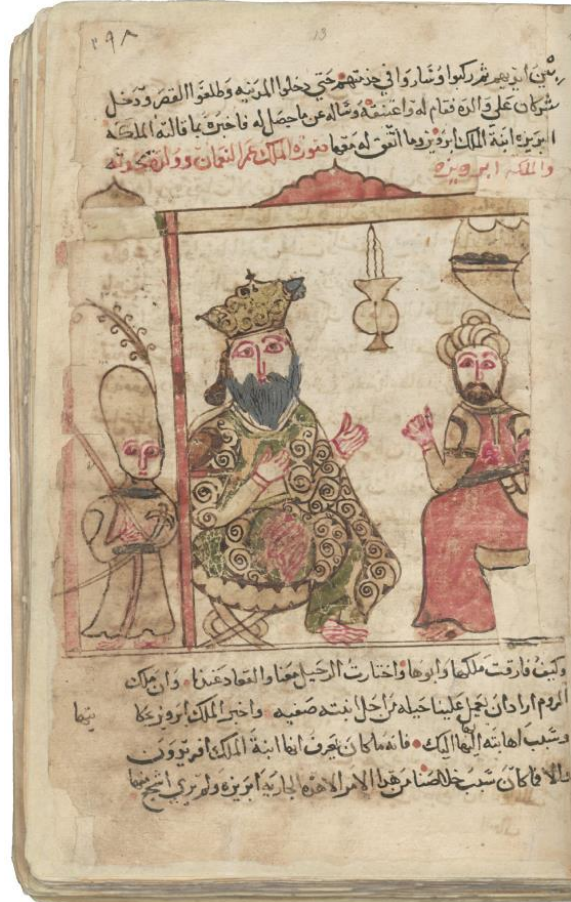 ٣٩٨
13
ثم ركبوا وساروا في خدمتهم حتى دخلوا المدينه وطلعوا القصر ودخل
شركان على والده فقام له واعتنقه وساله عن ما حصل له فاخبره بما قالته الملكه
ابريزه ابنة الملك وما اتفق له معها صورة الملك عمر النعمان وولده
والملكه ابرويزه
وكيف فارقت ملكها وابوها واختارت الرحيل معنا والقعاد عندنا وان ملك
الروم اراد ان يعمل علينا حيله من اجل ابنته صفيه واخبر الملك ابرويز
وسبب اليك فانه ما كان يعرف انها ابنة الملك افريدون
والا فما كان سبب خلاصنا من هذا الامر الا هذه الجاريه ابريزه ولم نري اشجع منها